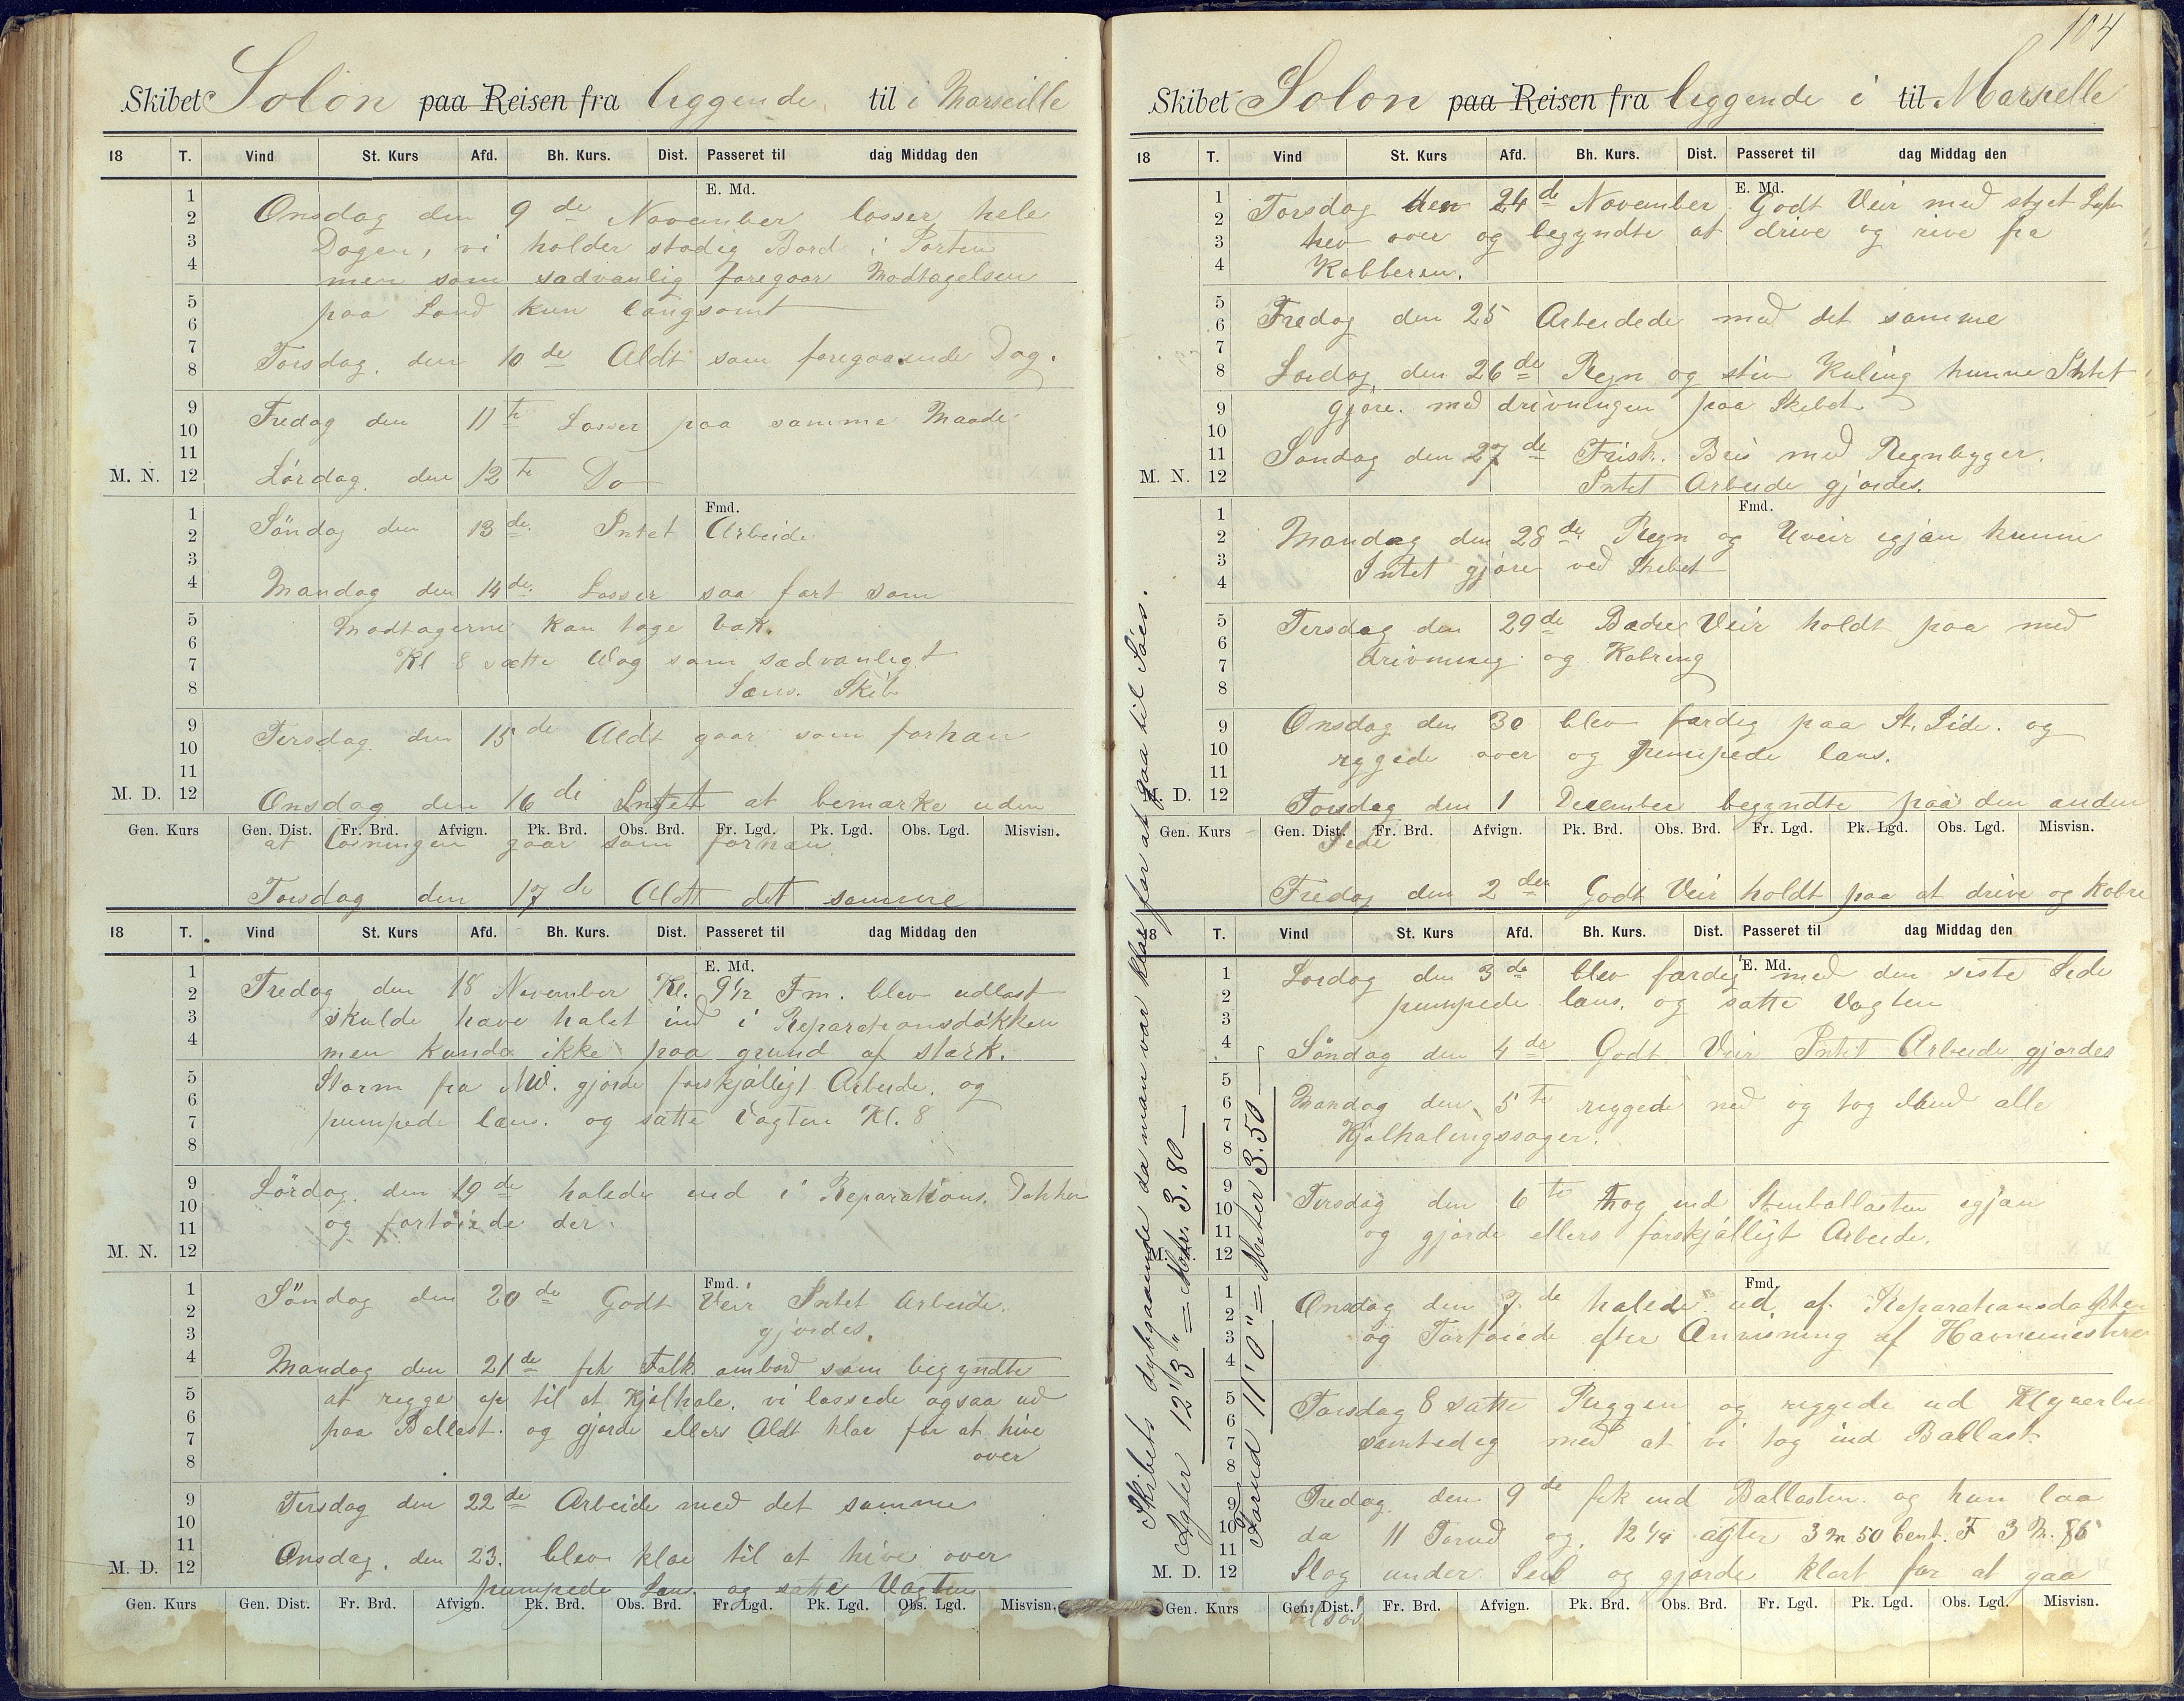 Skibet Solon paa Reisen fra liggende til i Marseille
18 T. Vind St. Kurs Afd. Bh. Kurs. Dist. Passeret til dag Middag den
E. Md.
1 2 3 4 5 6 7 8 9 10 11 12
M. N.
Onsdag den 9de November losser hele
Dagen, vi holder stadig Bord i Porten
men som sædvanlig foregaar Modtagelsen
paa Land kun langsomt
Torsdag den 10de Aldt som foregaaende Dag.
Fredag den 11te Losser paa samme Maade
Lördag den 12te Do
Fmd.
1 2 3 4 5 6 7 8 9 10 11 12
M. D.
Söndag den 13de Intet Arbeide
Mandag den 14de Losser saa fort som
Modtagerne kan tage Vak.
Kl 8 sætte Vag som sædvanligt
Læns. Skib
Tirsdag den 15de Aldt gaar som forhan
Onsdag den 16de Intet at bemærke uden
Gen. Kurs Gen. Dist. Fr. Brd. Afvign. Pk. Brd. Obs. Brd. Fr. Lgd. Pk. Lgd. Obs. Lgd. Misvisn.
at Losningen gaar som forhan
Torsdag den 17de Aldt det samme
18 T. Vind St. Kurs Afd. Bh. Kurs. Dist. Passeret til dag Middag den
E. Md.
1 2 3 4 5 6 7 8 9 10 11 12
M. N.
Fredag den 18 November Kl. 9½ Fm. blev udlost
skulde have halet ind i Reparationsdokken
men kunde ikke paa grund af stærk.
Storm fra NW. gjorde forskjælligt Arbeide. og
pumpede læns. og satte Vagten Kl. 8
Lördag. den 19de halede ind i Reparations. Dokken
og fortöiede der.
Fmd.
1 2 3 4 5 6 7 8 9 10 11 12
M. D.
Söndag den 20de Godt Veir Intet Arbeide.
gjordes.
Mandag den 21de fik Folk ombord som begyndte
at rigge op til at Kjølhale. vi lossede ogsaa ud
paa Ballast. og gjorde ellers Aldt klar for at hive
over
Tirsdag den 22de Arbeide med det samme
Onsdag. den 23. blev klar til at hive over
pumpede Læns. og satte Vagten
Gen. Kurs Gen. Dist. Fr. Brd. Afvign. Pk. Brd. Obs. Brd. Fr. Lgd. Pk. Lgd. Obs. Lgd. Misvisn.
104
Skibet Solon paa Reisen fra liggende i til Marselle
18 T. Vind St. Kurs Afd. Bh. Kurs. Dist. Passeret til dag Middag den
E. Md.
1 2 3 4 5 6 7 8 9 10 11 12
M. N.
Torsdag den 24de November Godt Veir med styet
hev over og begyndte at drive og rive fra
Kobberen.
Fredag den 25 Arbeidede med det samme
Lordag. den 26de Regn og stiv Kuling kunne Intet
gjøre. med drivningen paa Skibet
Sondag den 27de Frisk. Bris med Regnbyger.
Intet Arbeide gjordes.
Fmd.
1 2 3 4 5 6 7 8 9 10 11 12
M. D.
Mandag den 28de Regn og Uveir igjen kunne
Intet gjøre ved Skibet
Tirsdag den 29de Bedre Veir holdt paa med
drivning og Kobring
Onsdag den 30 blev færdig paa St. Side. og
riggede over og pumpede læns.
Torsdag den 1 December begyndte paa den anden
Gen. Kurs Gen. Dist. Fr. Brd. Afvign. Pk. Brd. Obs. Brd. Fr. Lgd. Pk. Lgd. Obs. Lgd. Misvisn.
Side
Fredag den 2den Godt Veir holdt paa at drive og Kobre
18 T. Vind St. Kurs Afd. Bh. Kurs. Dist. Passeret til dag Middag den
E. Md.
1 2 3 4 5 6 7 8 9 10 11 12
M. N.
Lordag den 3de blev færdig med den siste Side
pumpede læns. og satte Vagten
Söndag den 4de Godt Veir Intet Arbeide gjordes
Mandag den 5te riggede ned og tog iland alle
Kjølhalingssager.
Tirsdag den 6te tog ind Stenballasten igjen
og gjorde ellers forskjælligt Arbeide.
Fmd.
1 2 3 4 5 6 7 8 9 10 11 12
M. D.
Onsdag den 7de halede ud af Reparationsdokken
og Fortøiede efter Anvisning af Havnemestren
Torsdag 8 satte Riggen og riggede ud
samtidig med at vi tog ind Ballast
Fredag den 9de fik ind Ballasten og hun laa
da 11 Forud og 12¼ agter 3 m 50 Cent. F 3 M. 85
Slog under Seil og gjorde klart for at gaa
Gen. Kurs Gen. Dist. Fr. Brd. Afvign. Pk. Brd. Obs. Brd. Fr. Lgd. Pk. Lgd. Obs. Lgd. Misvisn.
tilsøs
Skibets dybgaaende da man var klar for at gaa til Søes.
Agter 12'3" = Metr. 3.80
Forud 11'0" = Meter 3.50